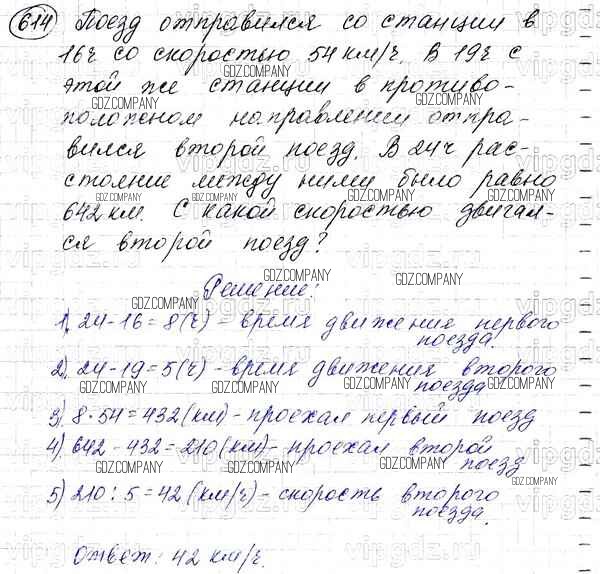 614 Поезд отправился со станции в
16ч со скоростью 54 км/ч. В 19ч с
этой же станции в противо-
положном направлении отпра-
вился второй поезд. В 24ч рас-
стояние между ними было равно
642 км. С какой скоростью двигал-
ся второй поезд?
Решение:
1) 24-16=8(ч) - время движения первого
поезда.
2) 24-19=5(ч) - время движения второго
поезда
3) 8·54=432(км) - проехал первый поезд
4) 642-432=210(км) - проехал второй
поезд
5) 210:5=42(км/ч) - скорость второго
поезда.
Ответ: 42 км/ч.